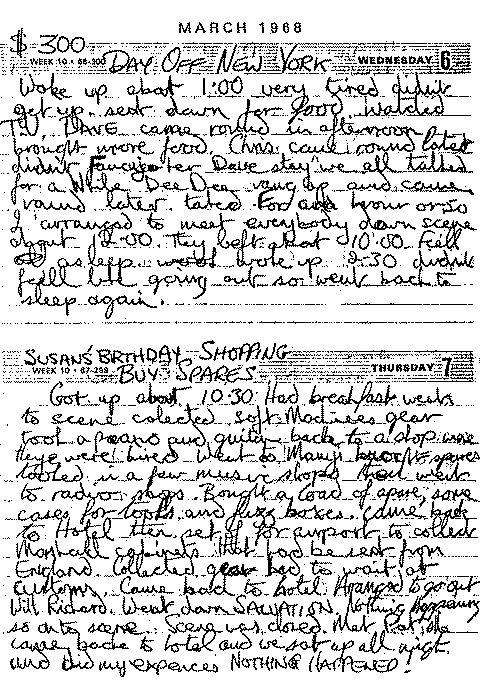 MARCH 1968
$ 300
WEEK 10 • 66-300 DAY OFF NEW YORK WEDNESDAY 6
Woke up about 1:00 very tired didnt
get up. sent down for food. watched
T.V. DAVE came round in afternoon
brought more food. Chris came round later
didnt Dave stay we all talked
for a while Dee Dee rang up and came
round later. talked For an hour or so
I arranged to meet everybody down scene
about 12.00. They left about 10.00 Feell
asleep. woke up 2.30 didnt
feell like going out so went back to
sleep again.
SUSANS BRTHDAY SHOPPING
WEEK 10 • 67-299 BUY SPARES THURSDAY 7
Got up about 10.30 Had breakfast went
to scene colected soft Machines gear
took a peano and guitar back to a shop were
theye were hired went to Mannys spares
looked in a few music shops then went
to radyor shops. Bought a load of spares, some
cases for tools and fuzz boxes. came back
to Hotel then set of for airport to collect
Marshall cabinets that had be sent from
England. Collected gear had to wait at
customs. Came back to hotel. Aranged to go out
with Richard. Went down SALVATION. Nothing happening
so onto scene. Scene was closed. Met
came back to hotel and we sat up all night
and did my expences NOTHING HAPPENED!